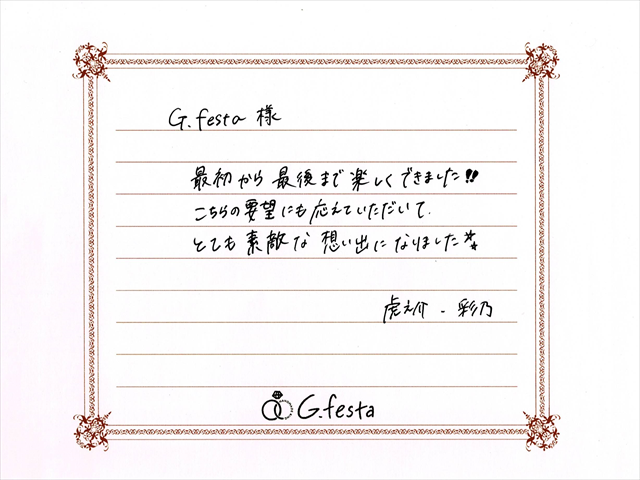 G.festa 様
最初から最後まで楽しくできました!!
こちらの要望にも応えていただいて、
とても素敵な想い出になりました
虎之介 - 彩乃
G.festa